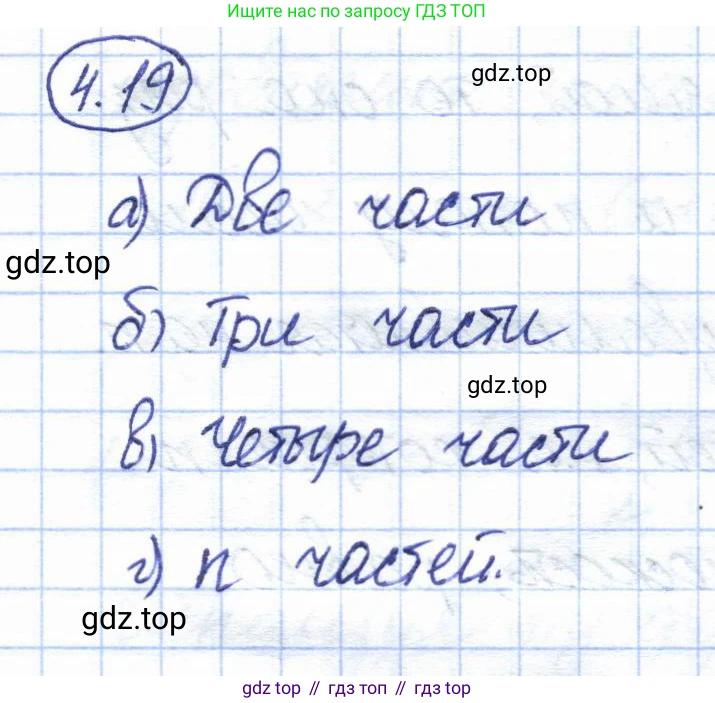 Ищите нас по запросу ГДЗ ТОП
4.19
gdz.top
а) Две части
gdz.top
б) Три части
gdz.top
в) Четыре части
г) n частей.
gdz.top
gdz top // гдз топ // gdz top